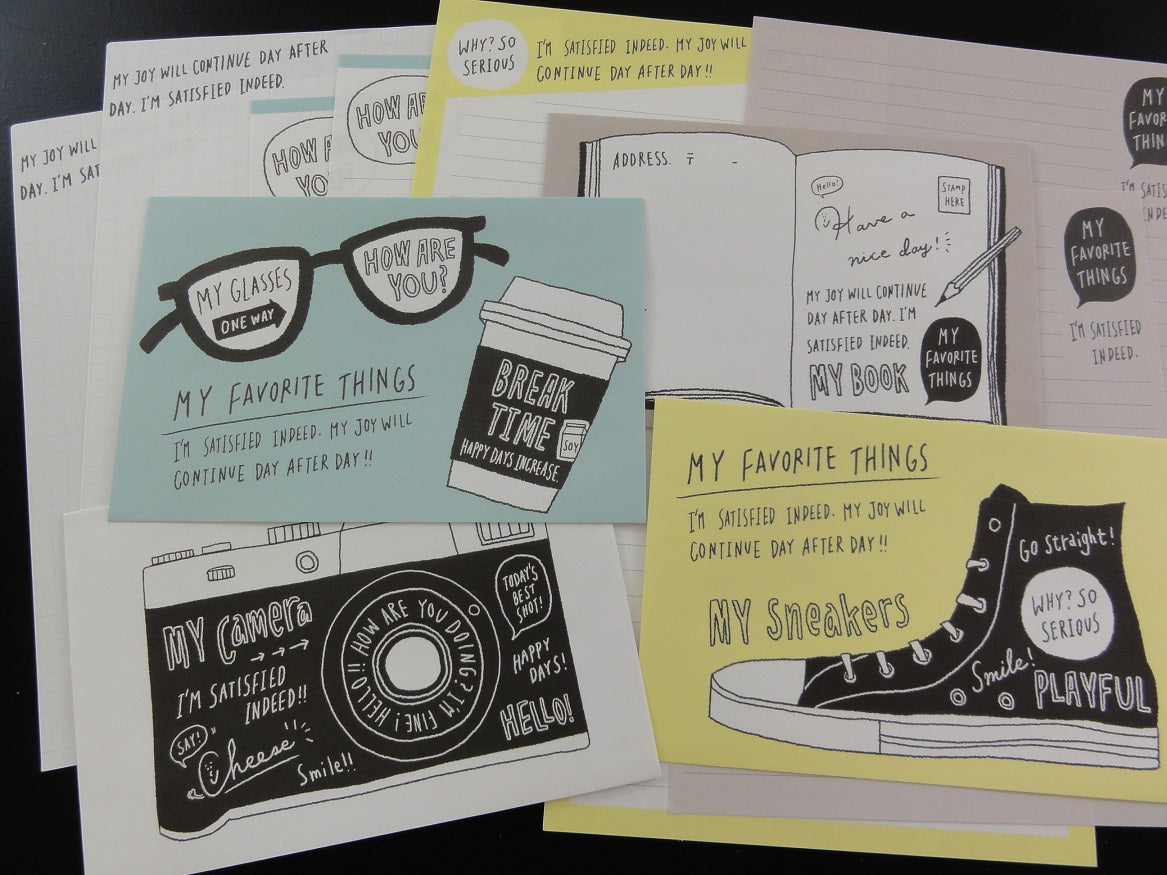 MY JOY WILL CONTINUE DAY AFTER
DAY. I'M SATISFIED INDEED.
MY JOY WILL
DAY. I'M
HOW
YO
HOW
YOU
WHY? SO
SERIOUS
I'M SATISFIED INDEED. MY JOY WILL
CONTINUE DAY AFTER DAY!!
MY
FAVOR
THIN
I'M SATIS
MY
FAVORITE
THINGS
I'M SATISFIED
INDEED.
ADDRESS. 〒 -
Hello!
STAMP
HERE
Have a
nice day!
MY JOY WILL CONTINUE
DAY AFTER DAY. I'M
SATISFIED INDEED.
MY BOOK
MY
FAVORITE
THINGS
MY GLASSES
ONE WAY
HOW ARE
YOU?
MY FAVORITE THINGS
I'M SATISFIED INDEED. MY JOY WILL
CONTINUE DAY AFTER DAY!!
BREAK
TIME
SOY
HAPPY DAYS INCREASE.
MY Camera
I'M SATISFIED
INDEED!!
SAY!
Cheese
Smile!!
HOW ARE YOU DOING? I'M FINE! HELLO!!
TODAY'S
BEST
SHOT!
HAPPY
DAYS!
HELLO!
MY FAVORITE THINGS
I'M SATISFIED INDEED. MY JOY WILL
CONTINUE DAY AFTER DAY!!
MY Sneakers
Go Straight!
WHY? SO
SERIOUS
Smile!
PLAYFUL